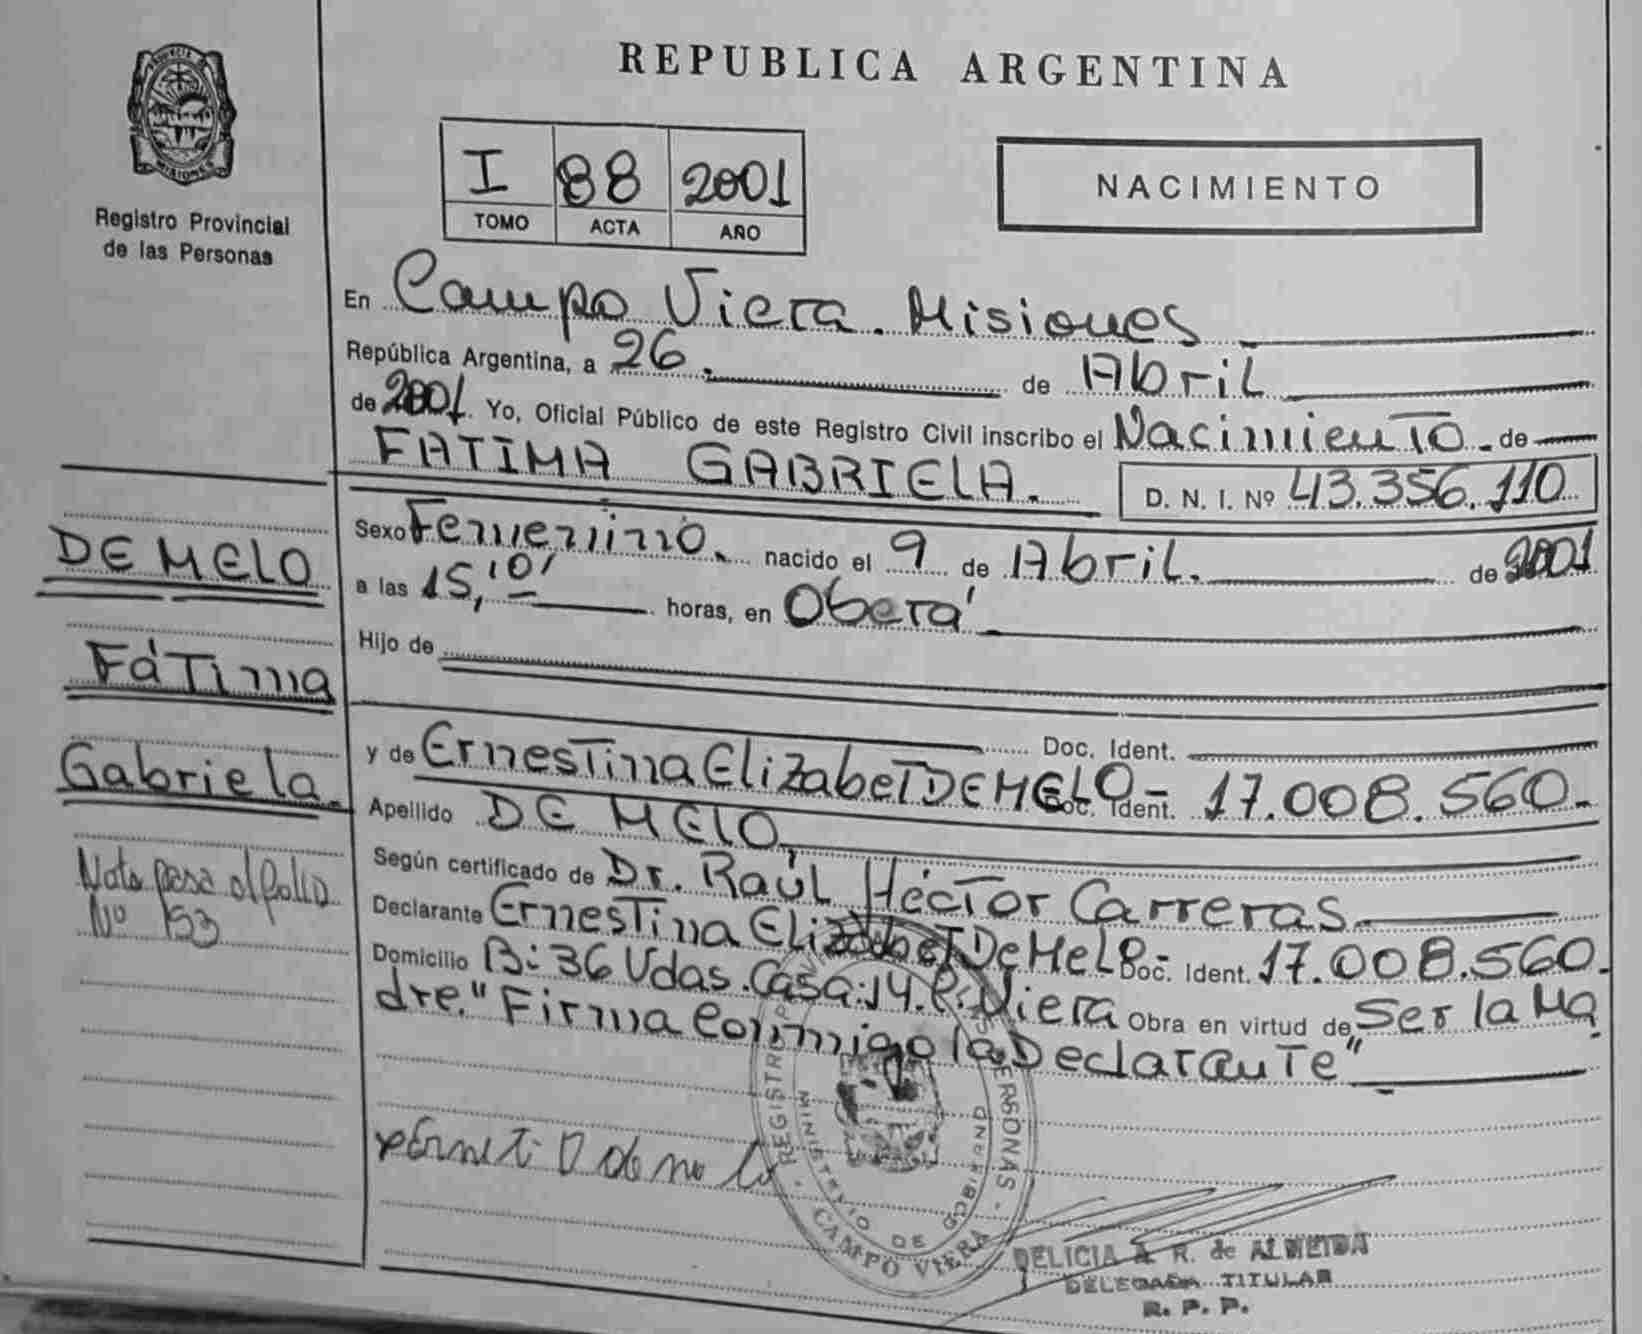 PROVINCIA DE
MISIONES
Registro Provincial
de las Personas
REPUBLICA ARGENTINA
I 88 2001
TOMO ACTA AÑO
NACIMIENTO
En Campo Viera. Misiones
República Argentina, a 26. de Abril
de 2001. Yo, Oficial Público de este Registro Civil inscribo el Nacimiento de
FATIMA GABRIELA. D. N. I. Nº 43.356.110
Sexo Femenino. nacido el 9 de Abril. de 2001
a las 15,'0' horas, en Oberá
Hijo de
Doc. Ident.
y de Ernestina Elizabet DE MELO - Doc. Ident. 17.008.560.
Apellido DE MELO
Según certificado de Dr. Raúl Héctor Carreras.
Declarante Ernestina Elizabet De Melo - Doc. Ident. 17.008.560.
Domicilio B: 36 Vdas. Casa: 14. C. Viera Obra en virtud de Ser la Ma
dre. "Firma Conmigo la Declarante"
DE MELO
Fátima
Gabriela.
Nota pasa al folio
Nº 153
REGISTRO PERSONAS
MINISTERIO DE GOBIERNO
CAMPO VIERA
DELICIA A R. de ALMEIDA
DELEGADA TITULAR
R. P. P.